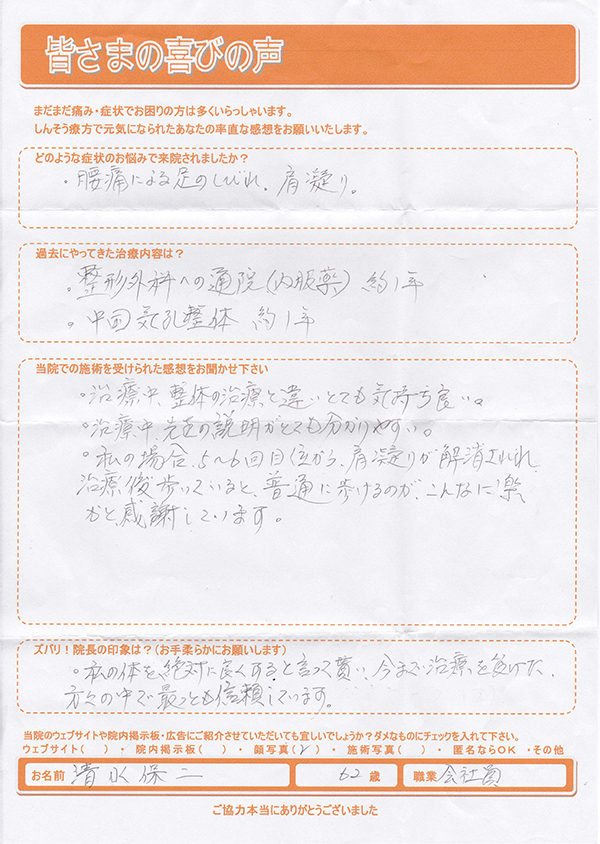 皆さまの喜びの声
まだまだ痛み・症状でお困りの方は多くいらっしゃいます。
しんそう療方で元気になられたあなたの率直な感想をお願いいたします。
どのような症状のお悩みで来院されましたか？
・腰痛による足のしびれ、肩凝り。
過去にやってきた治療内容は？
・整形外科への通院(内服薬) 約1年
・中国気孔整体 約1年
当院での施術を受けられた感想をお聞かせ下さい
・治療中、整体の治療と違いとても気持ち良い。
・治療中、先生の説明がとても分かりやすい。
・私の場合、5〜6回目位から、肩凝りが解消され
治療後歩いていると、普通に歩けるのが、こんなに楽
かと、感謝しています。
ズバリ！院長の印象は？(お手柔らかにお願いします)
・私の体を絶対に良くすると言って貰い、今まで治療を受けた
方々の中で最っとも信頼しています。
当院のウェブサイトや院内掲示板・広告にご紹介させていただいても宜しいでしょうか？ダメなものにチェックを入れて下さい。
ウェブサイト( )・ 院内掲示板( )・ 顔写真(✓)・ 施術写真( )・ 匿名ならOK ・その他
お名前 清水保二 62 歳 職業 会社員
ご協力本当にありがとうございました